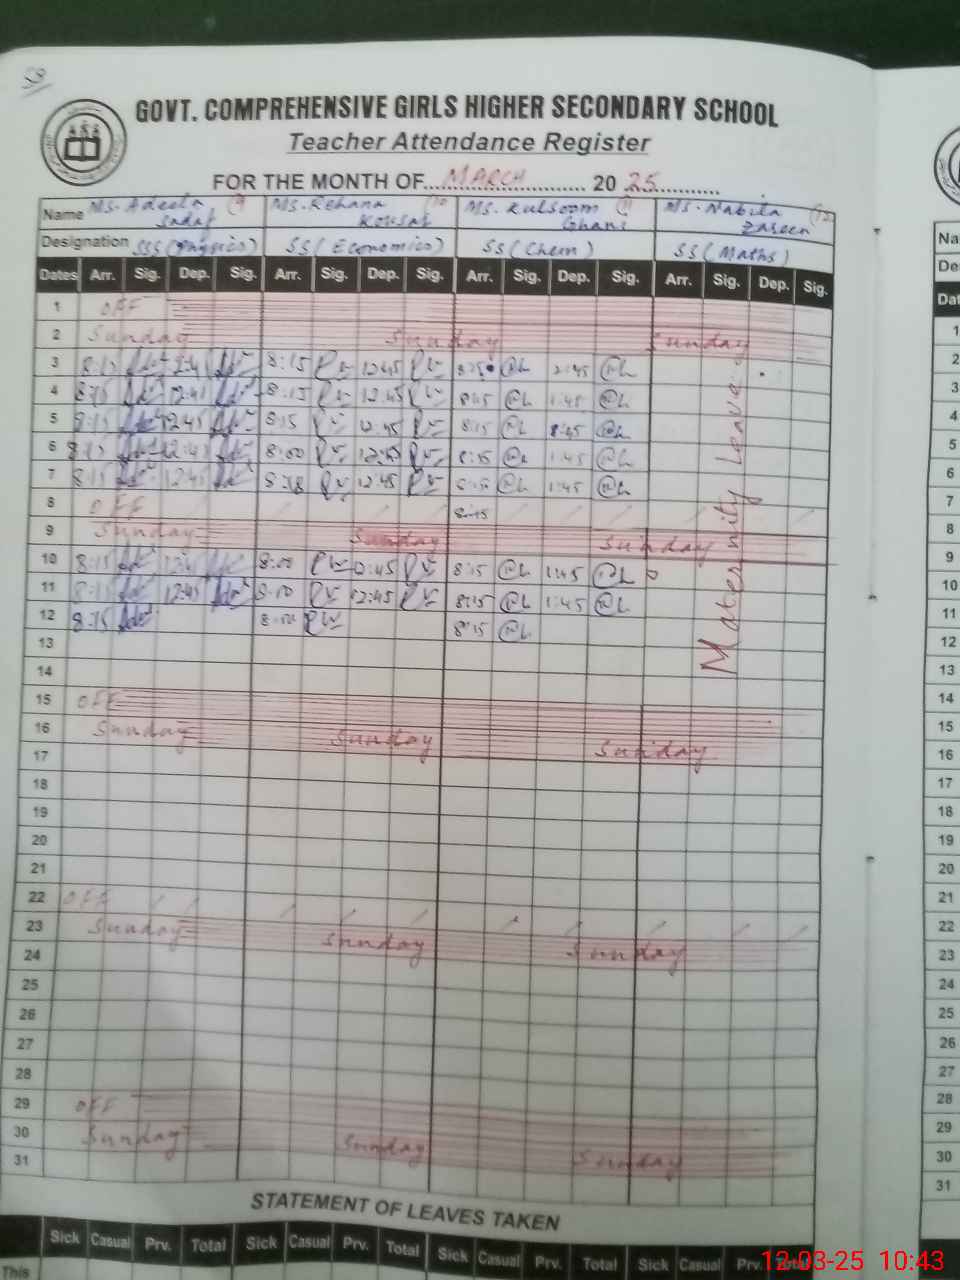 58
GOVT. COMPREHENSIVE GIRLS HIGHER SECONDARY SCHOOL
Teacher Attendance Register
FOR THE MONTH OF MARCH 2025
Name Ms. Adeela Sadaf Ms. Rehana Kousar Ms. Kulsoom Ghani Ms. Nabila Zareen
Designation SSS (Physics) SS (Economics) SS (Chem) SS (Maths)
Dates Arr. Sig. Dep. Sig. Arr. Sig. Dep. Sig. Arr. Sig. Dep. Sig. Arr. Sig. Dep. Sig.
1 OFF
2 Sunday Sunday Sunday
3 8:15 8:15 12:45
4 8:15 12:45 8:15 12:45 8:15 1:45
5 8:15 12:45 8:15 12:45 8:15
6 8:15 12:45 8:00 12:45 8:15 1:45
7 8:15 12:45 12:45 8:15 1:45
8 OFF 8:15
9 Sunday Sunday Sunday
10 8:15 8:00 12:45 8:15 1:45
11 8:15 12:45 8:00 12:45 8:15 1:45
12 8:15 8:00 8:15
Maternity Leave
13
14
15 OFF
16 Sunday Sunday Sunday
17
18
19
20
21
22 OFF
23 Sunday Sunday Sunday
24
25
26
27
28
29 OFF
30 Sunday Sunday Sunday
31
STATEMENT OF LEAVES TAKEN
Sick Casual Prv. Total Sick Casual Prv. Total Sick Casual Prv. Total Sick Casual Prv. Total
This
12-03-25 10:43
Na
De
Dat
1
2
3
4
5
6
7
8
9
10
11
12
13
14
15
16
17
18
19
20
21
22
23
24
25
26
27
28
29
30
31